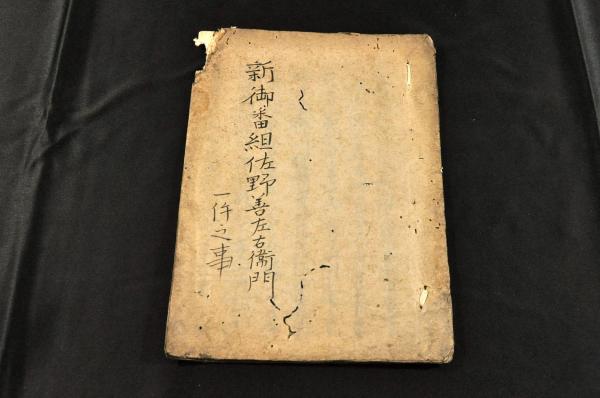 新御番組佐野善左右衞門
一件之事